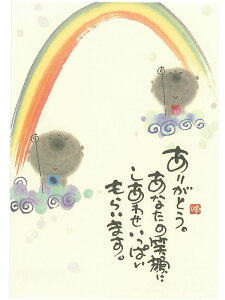 ありがとう。
あなたの笑顔に
しあわせいっぱい
もらいます。